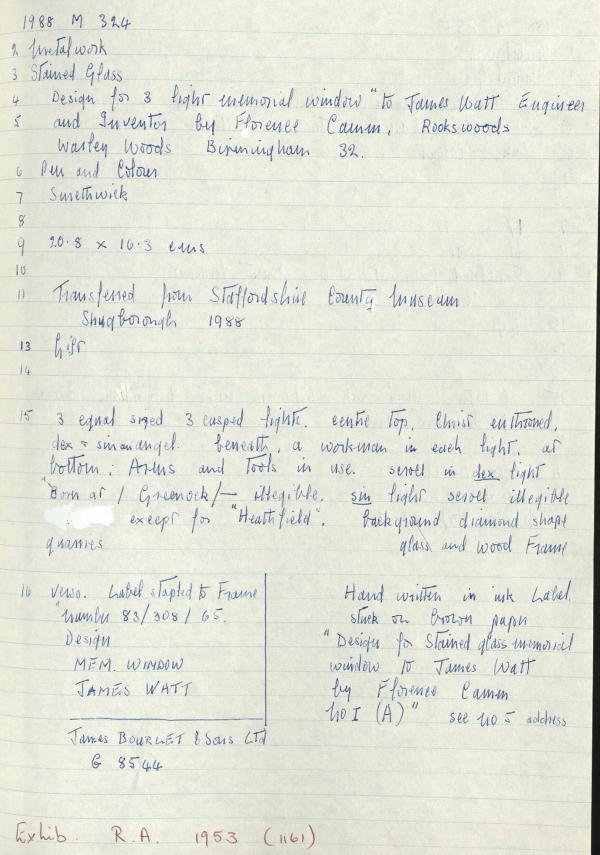 1988 M 324
2 Metalwork
3 Stained Glass
4 Design for 3 light memorial window "to James Watt Engineer
5 and Inventor by Florence Camm, Rookswoods
Warley Woods Birmingham 32.
6 Pen and Colour
7 Smethwick
8
9 20.8 x 16.3 cms
10
11 Transferred from Staffordshire County Museum
Shugborough 1988
13 Gift
14
15 3 equal sized 3 cusped lights. centre top, Christ enthroned,
dex = sin an angel. beneath, a workman in each light. at
bottom: Arms and Tools in use. scroll in dex light
"Born at / Greenock / — illegible. sin light scroll illegible
except for "Heathfield". background diamond shape
quarries glass and wood Frame
16 verso. Label stapled to Frame
"number 83/308/65.
Design
MEM. WINDOW
JAMES WATT
James BOURLET & Sons LTD
G 8544
Hand written in ink Label,
stuck on brown paper
"Design for Stained glass memorial
window to James Watt
by Florence Camm
No I (A)" see no 5 address
Exhib. R.A. 1953 (1161)